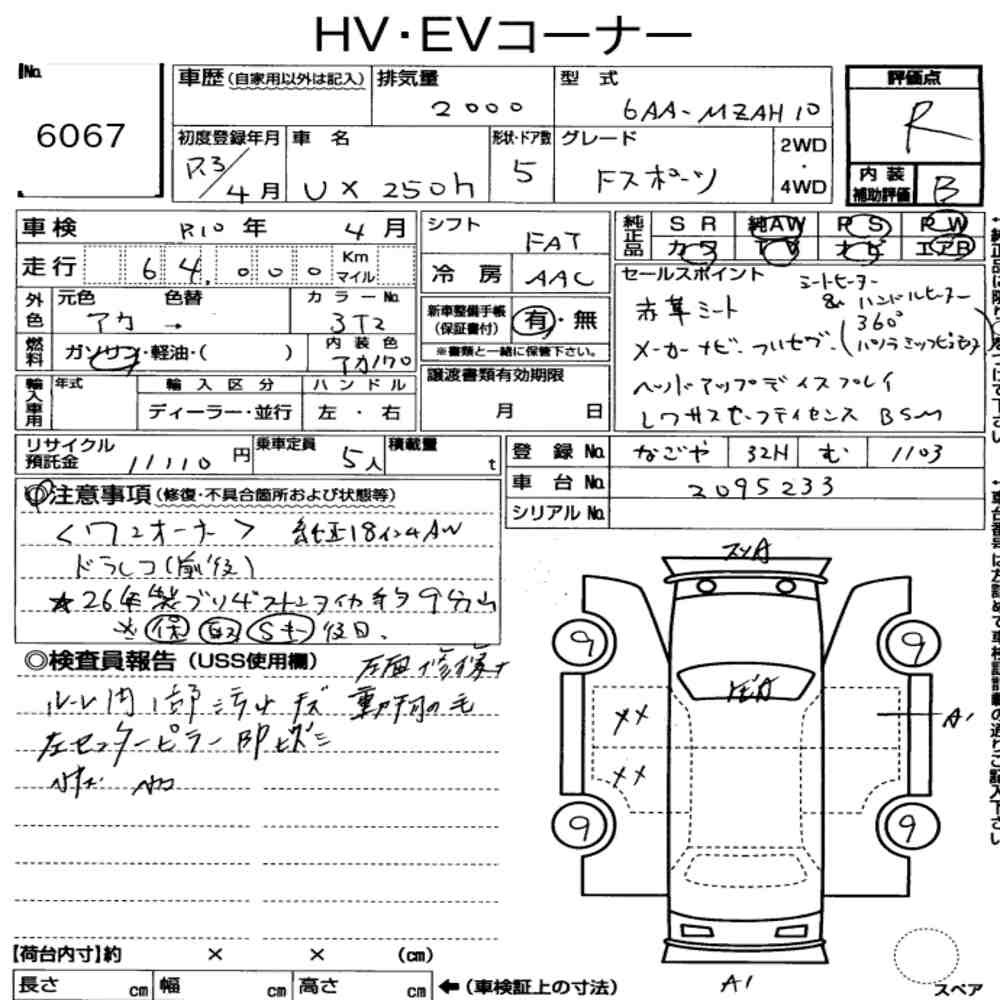 HV・EVコーナー
No. 6067
車歴(自家用以外は記入)
排気量 2000
型式 6AA-MZAH10
評価点 R
初度登録年月 R.3/4月
車名 UX 250h
形状・ドア数 5
グレード Fスポーツ
2WD・4WD
内装補助評価 B
車検 R10年 4月
シフト FAT
純正品 SR 純AW PS PW
カワ TV ナビ エアB
走行 64,000 Km マイル
冷房 AAC
セールスポイント
シートヒーター
& ハンドルヒーター
赤革シート
360°
メーカーナビ.フルセグ.
外色 元色 アカ 色替 → カラーNo. 3T2
新車整備手帳(保証書付) 有・無
※書類と一緒に保管下さい。
燃料 ガソリン・軽油・( ) 内装色 アカ170
ヘッドアップディスプレイ
BSM
輸入車用 年式 輸入区分 ハンドル
ディーラー・並行 左・右
譲渡書類有効期限
月 日
リサイクル預託金 11110円
乗車定員 5人
積載量 t
登録No. なごや 32H む 1103
車台No. 2095233
シリアルNo.
注意事項(修復・不具合箇所および状態等)
<ワンオーナー> 純正18インチAW
ドラレコ(前後)
★26年製ブリヂストンタイヤ 9分山
※ 保 取 Sキー 後日.
◎検査員報告(USS使用欄) 左面修復ナ
ルーム内1部汚レキズ 動物の毛
左センターピラー部ヒズミ
フA
ヒA
9 9
XX
A1
XX
9 9
A1
【荷台内寸】約 × × (cm)
長さ cm 幅 cm 高さ cm ←(車検証上の寸法)
スペア